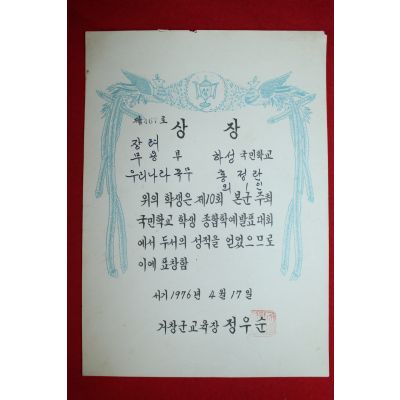 제467호
상 장
장려
무용부 하성 국민학교
우리나라 춤무 홍정란
외 1인
위의 학생은 제10회 본군 주최
국민학교 학생 종합학예발표대회
에서 두서의 성적을 얻었으므로
이에 표창함
서기 1976년 4월 17일
거창군교육장 정우순